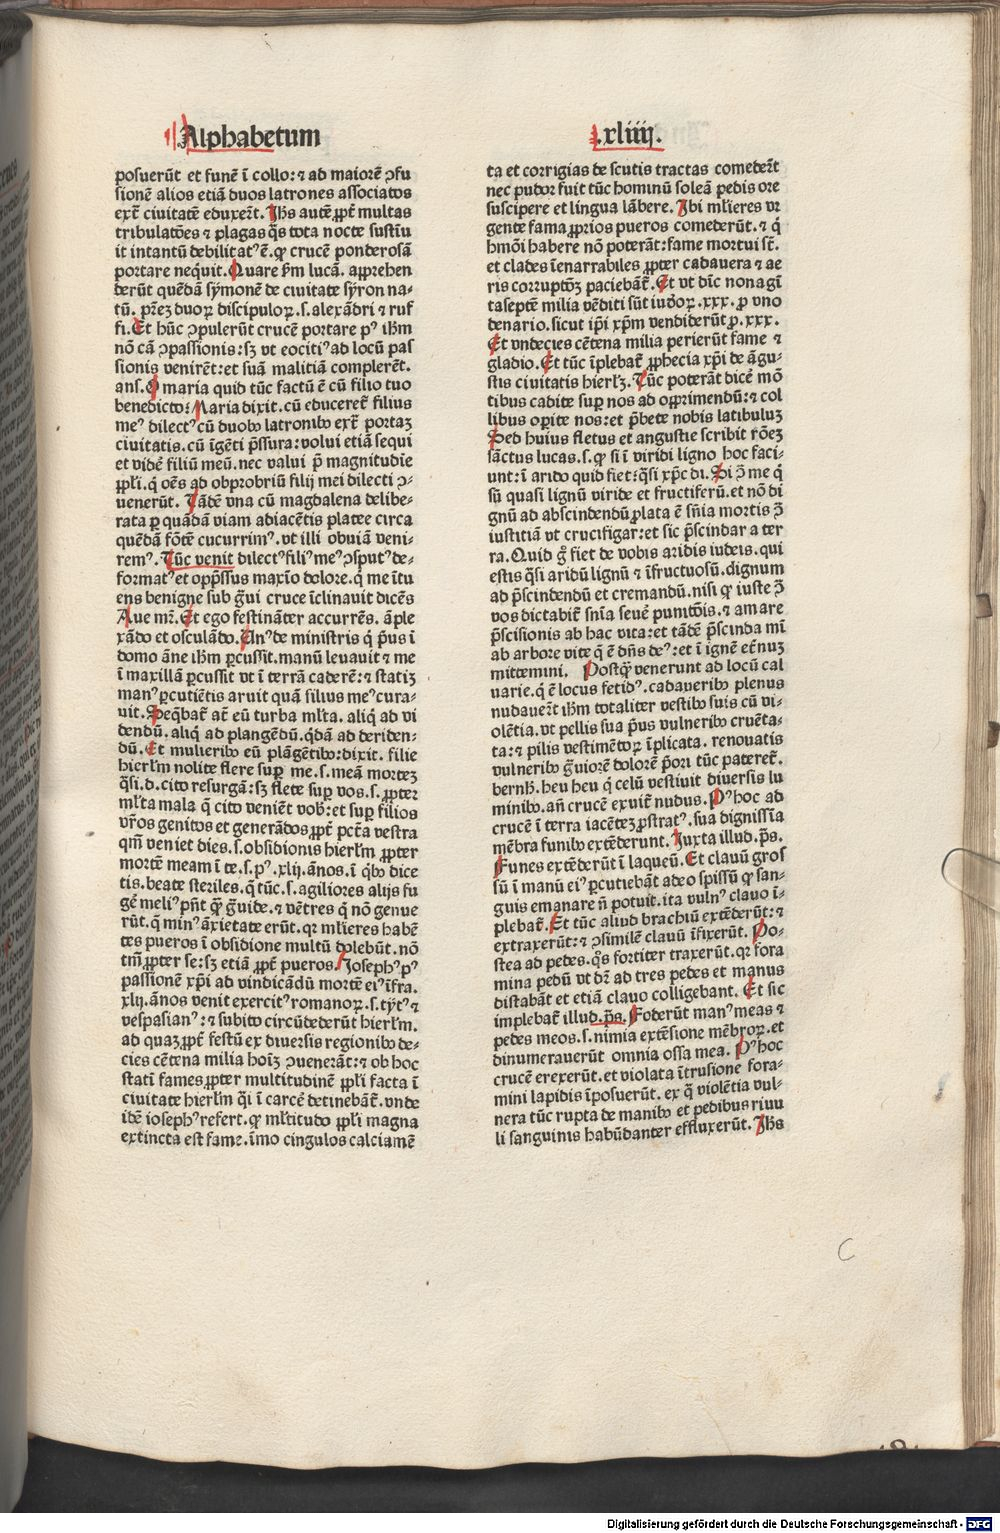 Alphabetum
.xliiij.
posuerūt et funē ī collo:⁊ ad maiorē ꝯfu
sionē alios etiā duos latrones associatos
extᷓ ciuitatē eduxerūt. Jhs autē ꝓpt̄ multas
tribulatōes ⁊ plagas q̄s tota nocte sustīu
it intantū debilitatꝰ ē. ꝙ crucē ponderosā
portare neq̇uit. Quare ẜm lucā. apprehen
derūt quēdā sȳmonē de ciuitate sȳron na-
tū. pr̄eꝫ duoꝝ discipuloꝝ.s.alexādri ⁊ ruf
fi. Et hūc ꝯpulerūt crucē portare pꝰ ihm̄
nō cā ꝯpassionis:sꝫ vt eocitiꝰ ad locū pas
sionis venirēt:et suā malitiā complerēt.
ans. O maria quid tūc factū ē cū filio tuo
benedicto? Maria dixit. cū educeret̄ filius
meꝰ dilectꝰ cū duobꝰ latronibꝰ extᷓ portaꝫ
ciuitatis. cū īgēti p̄ssura: volui etiā sequi
et vidē filiū meū. nec valui p̄ magnitudīe
ppl̄i. q̇ oēs ad obprobriū filij mei dilecti ꝯ-
uenerūt. Tādē vna cū magdalena delibe-
rata ꝑ quādā viam adiacētis platee circa
quēdā fōtē cucurrimꝰ. vt illi obuiā veni-
remꝰ. Tūc venit dilectꝰ filiꝰ meꝰ ꝯsputꝰ de-
formatꝰ et opp̄ssus maxīo dolore. q̇ me ītu
ens benigne sub ḡui cruce īclinauit dicēs
Aue mr̄. Et ego festināter accurrēs. āple
xādo et osculādo. Unꝰ de ministris q̇ p̄us ī
domo āne ihm̄ ꝑcussit. manū leuauit ⁊ me
ī maxillā ꝑcussit vt ī terrā caderē:⁊ statiꝫ
manꝰ ꝑcutiētis aruit quā filius meꝰ cura-
uit. Seq̄bat̄ at̄ eū turba ml̄ta. aliq̇ ad vi
dendū. aliq̇ ad plangēdū. q̇dā ad deriden-
dū. Et mulieribꝰ eū plāgētibꝰ: dixit. filie
hierl̄m nolite flere suꝑ me.s.meā morteꝫ
q̄si.d.cito resurgā:sꝫ flete suꝑ vos.s.ꝓpter
ml̄ta mala q̄ cito veniēt vob̄: et suꝑ filios
vr̄os genitos et generādos ꝓpt̄ pctā vestra
qm̄ veniet dies.s.obsidionis hierl̄m ꝓpter
mortē meam ī te.s.pꝰ.xlij.ānos. ī q̇bꝰ dice
tis. beate steriles. q̄ tūc.s.agiliores alijs fu
gē meliꝰ pn̄t q̄ꝫ ḡuide. ⁊ vētres q̇ nō genue
rūt. q̄ minꝰ āxietate erūt. qꝛ ml̄ieres habē
tes pueros ī obsidione multū dolebūt. nō
tm̄ ꝓpter se:sꝫ etiā ꝓpt̄ pueros. Josephꝰ pꝰ
passionē xp̄i ad vindicādū mortē eiꝰ īfra.
xlij.ānos venit exercitꝰ romanoꝝ.s.tȳtꝰ ⁊
vespasianꝰ:⁊ subito circūdederūt hierl̄m.
ad quaꝫ ꝓpt̄ festū ex diuersis regionibꝰ de-
cies cētena milia hoīꝫ ꝯuenerāt:⁊ ob hoc
statī fames ꝓpter multitudinē ppl̄i facta ī
ciuitate hierl̄m q̄i ī carcē detinebāt̄. vnde
idē iosephꝰ refert. ꝙ ml̄titudo ppl̄i magna
extincta est fame. īmo cingulos calciamē
ta et corrigias de scutis tractas comederūt
nec pudor fuit tūc hominū soleā pedis ore
suscipere et lingua lābere. Ibi ml̄ieres vr
gente fama ꝓprios pueros comederūt. ⁊ q̇
hmōi habere nō poterāt: fame mortui st̄.
et clades īenarrabiles ꝓpter cadauera ⁊ ae
ris corruptōꝫ paciebāt̄. Et vt dīc nonagī
taseptē milia vēditi sūt iudoꝝ.xxx.ꝓ vno
denario. sicut ip̄i xp̄m vendiderūt ꝓ.xxx.
Et vndecies cētena milia perierūt fame ⁊
gladio. Et tūc īplebat̄ ꝓphecia xp̄i de āgu-
stis ciuitatis hierl̄ꝫ. Tūc poterāt dicē mō
tibus cadite suꝑ nos ad opprimendū:⁊ col
libus oꝑite nos: et p̄bete nobis latibuluꝫ
Sed huius fletus et angustie scribit rōeꝫ
sāctus lucas.s.ꝙ si ī viridi ligno hoc faci-
unt: ī arido quid fiet: q̄si xp̄c di. Si ī me q̇
sū quasi lignū viride et fructiferū. et nō di
gnū ad abscindendū ꝓlata ē sn̄ia mortis ꝯ̄
iustitiā vt crucifigar: et sic p̄scindar a ter
ra. Quid ḡ fiet de vobis aridis iudeis. qui
estis q̄si aridū lignū ⁊ īfructuosū. dignum
ad p̄scindendū et cremandū. nisi ꝙ iuste ꝯ̄
vos dictabit̄ sn̄ia seuē punitōis. ⁊ amare
p̄scisionis ab hac vita: et tādē p̄scinda mī
ab arbore vite q̄ ē dn̄s deꝰ: et ī ignē et̄nuꝫ
mittemini. Postq̄ꝫ venerunt ad locū cal
uarie. q̇ ē locus fetidꝰ. cadaueribꝰ plenus
nudauerūt ihm̄ totaliter vestibꝰ suis cū vi-
olētia. vt pellis sua p̄us vulneribꝰ cruēta-
ta:⁊ pilis vestimētoꝝ īplicata. renouatis
vulneribꝰ ḡuiorē dolorē p̄ori tūc pateret̄.
bernh̄. heu heu q̇ celū vestiuit diuersis lu
minibꝰ. an̄ crucē exuit̄ nudus. Pꝰ hoc ad
crucē ī terra iacēteꝫ ꝓstratꝰ. sua dignissīa
mēbra funibꝰ extēderunt. Juxta illud. p̄s.
Funes extēderūt ī laqueū. Et clauū gros
sū ī manū eiꝰ ꝑcutiebāt adeo spissū ꝙ san-
guis emanare n̄ potuit. ita vulnꝰ clauo ī-
plebat̄. Et tūc aliud brachiū extēderūt:⁊
extraxerūt:⁊ ꝯsimilē clauū īfixerūt. Po-
stea ad pedes. q̄s fortiter traxerūt. qꝛ fora
mina pedū vt dꝛ̄ ad tres pedes et manus
distabāt et etiā clauo colligebant. Et sic
implebat̄ illud. p̄s. Foderūt manꝰ meas ⁊
pedes meos.s.nimia extēsione mēbroꝝ. et
dinumerauerūt omnia ossa mea. Pꝰ hoc
crucē erexerūt. et violata ītrusione fora-
mini lapidis īposuerūt. ex q̇ violētia vul-
nera tūc rupta de manibꝰ et pedibus riuu
li sanguinis habūdanter effluxerūt. Jhs
C
Digitalisierung gefördert durch die Deutsche Forschungsgemeinschaft - DFG